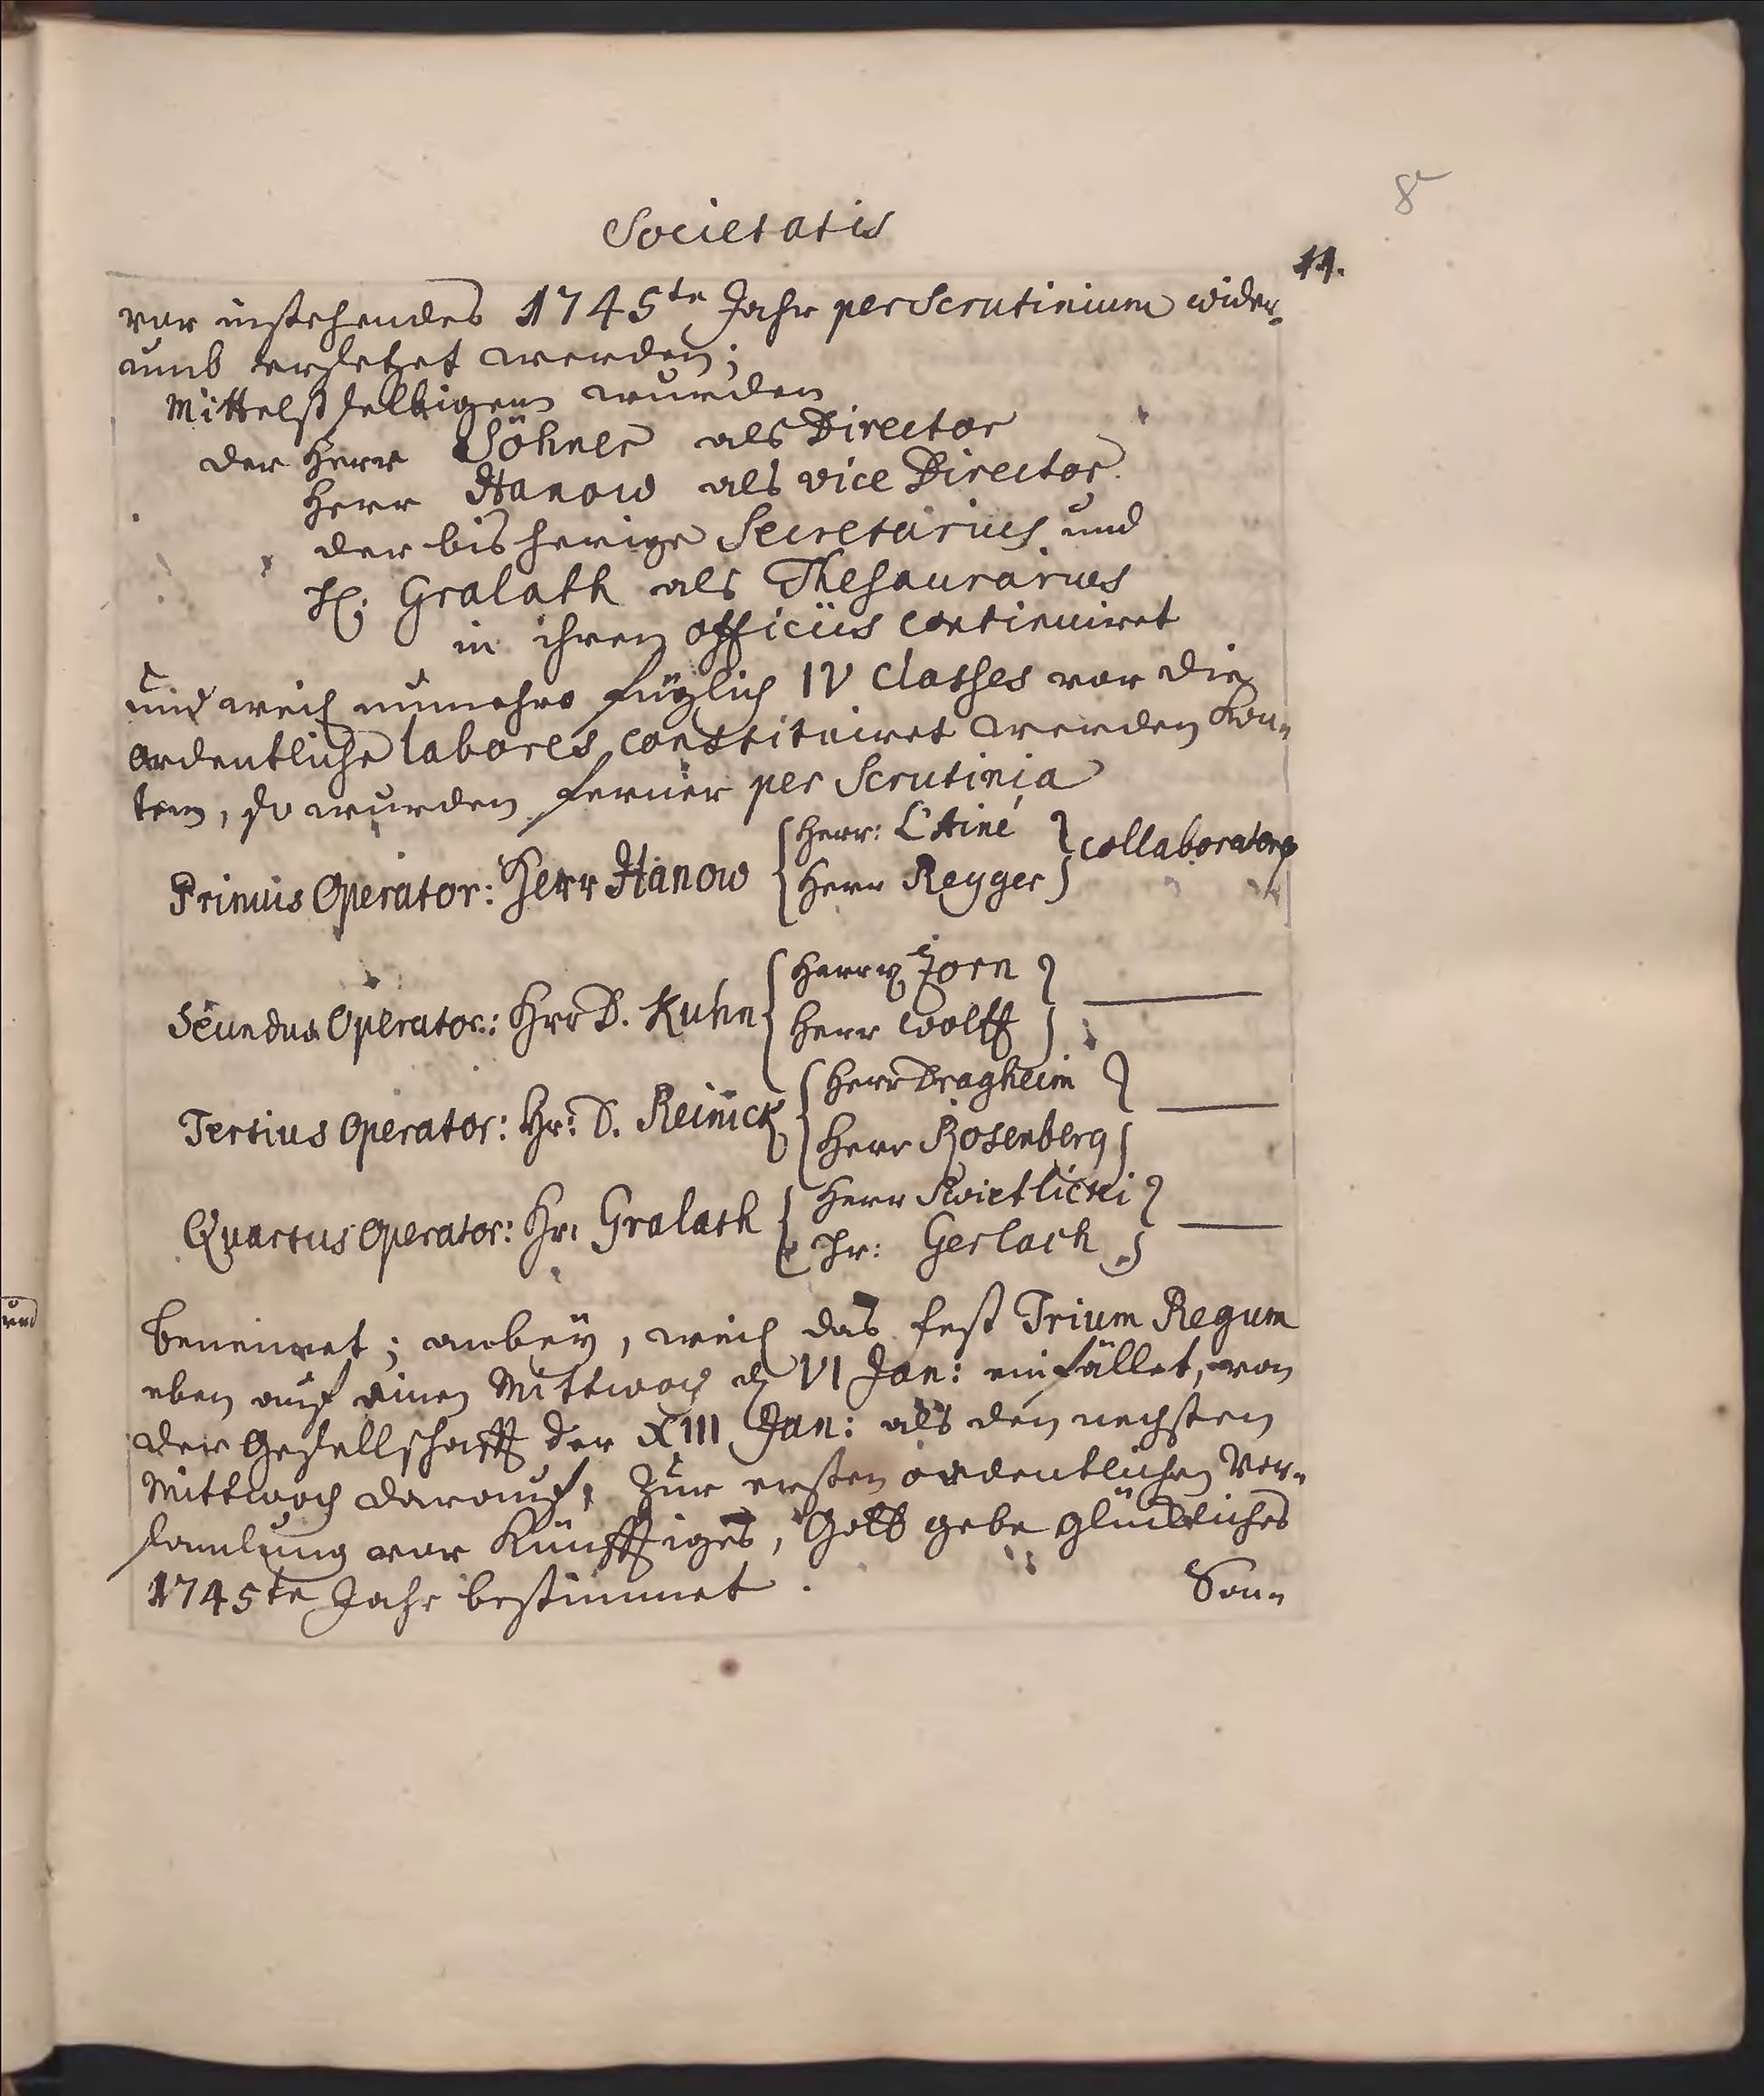 8
Societatis
11.
vor instehendes 1745te Jahr per Scrutinium wider-
umb ersetzet werden;
Mittelst selbigem wurden
der Herr Söhner als Director
Herr Hanow als vice Director
der bisherige Secretarius und
H. Gralath als Thesaurarius
in ihren officiis continuiret
und weil nunmehro füglich IV Classes vor die
ordentliche labores constituiret werden kon-
ten, so wurden ferner per Scrutinia
Primus Operator: Herr Hanow { Herr: L'Ainé } collaborators
{ Herr Reyger }
Secundus Operator: Hrr D. Kuhn { Herr Zorn } ———
{ Herr Wolff }
Tertius Operator: Hr: D. Reinick { Herr Dragheim } ———
{ Herr Rosenberg }
Quartus Operator: Hr: Gralath { Herr Swietlicki } ———
{ Hr: Gerlach }
benennet; anbey, weil das fest Trium Regum
eben auf einen Mittwoch d VI Jan: einfället, von
der Gesellschafft der XIII Jan: als den nechsten
Mittwoch darauf, zur ersten ordentlichen Ver-
samlung vor künfftiges, Gott gebe glückliches
1745te Jahr bestimmet.
Son-
und